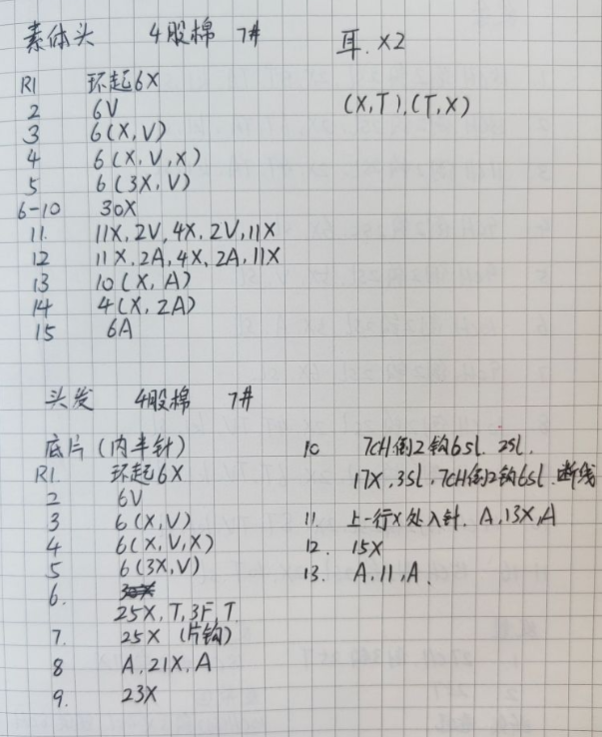 素体头 4股棉 7#
R1 环起6X
2 6V
3 6(X,V)
4 6(X,V,X)
5 6(3X,V)
6-10 30X
11. 11X,2V,4X,2V,11X
12 11X,2A,4X,2A,11X
13 10(X,A)
14 4(X,2A)
15 6A
耳.X2
(X,T),(T,X)
头发 4股棉 7#
底片(内半针)
R1. 环起6X
2 6V
3 6(X,V)
4 6(X,V,X)
5 6(3X,V)
6.
25X,T,3F,T
7. 25X (片钩)
8 A,21X,A
9. 23X
10 7CH倒2钩6sl.2sl.
17X,3sl,7CH倒2钩6sl.断线
11. 上一行X处入针.A,13X,A
12. 15X
13. A,11,A.